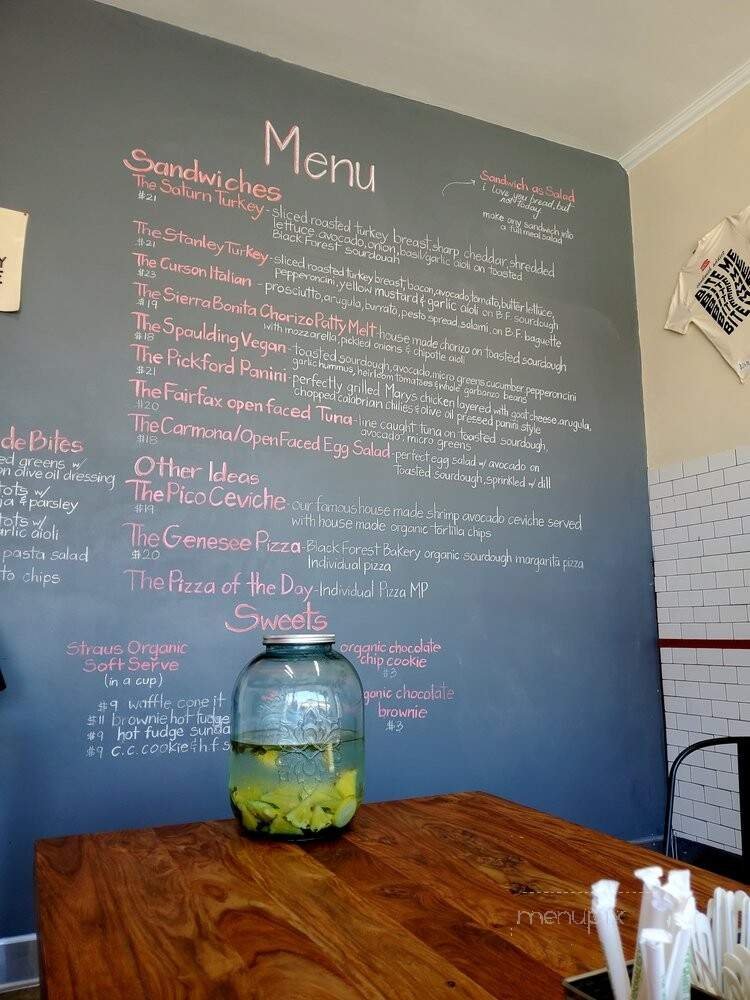 Menu
Sandwiches
The Saturn Turkey - sliced roasted turkey breast, sharp cheddar, shredded
$21
lettuce, avocado, onion, basil/garlic aioli on toasted
Black Forest sourdough
The Stanley Turkey - sliced roasted turkey breast, bacon, avocado, tomato, butter lettuce,
$21
pepperoncini, yellow mustard & garlic aioli on B.F. sourdough
The Curson Italian - prosciutto, arugula, burrata, pesto spread, salami. on B.F. baguette
$23
The Sierra Bonita Chorizo Patty Melt - house made chorizo on toasted sourdough
$19
with mozzarella, pickled onions & chipotle aioli
The Spaulding Vegan - toasted sourdough, avocado, micro greens, cucumber, pepperoncini
$18
garlic hummus, heirloom tomatoes & whole garbanzo beans
The Pickford Panini - perfectly grilled Marys chicken layered with goat cheese, arugula,
$21
chopped calabrian chilies & olive oil pressed panini style
The Fairfax open faced Tuna - line caught tuna on toasted sourdough,
$20
avocado, micro greens
The Carmona/Open Faced Egg Salad - perfect egg salad w/ avocado on
$18
Toasted sourdough, sprinkled w/ dill
Other Ideas
The Pico Ceviche - our famous house made shrimp avocado ceviche served
$19
with house made organic tortilla chips
The Genesee Pizza - Black Forest Bakery organic sourdough margarita pizza
$20
Individual pizza
The Pizza of the Day - Individual Pizza MP
Sandwich as Salad
i love you bread, but
not today
make any sandwich into
a full meal salad
de Bites
ed greens w/
on olive oil dressing
tots w/
a & parsley
tots w/
arlic aioli
pasta salad
to chips
Sweets
Straus Organic
Soft Serve
(in a cup)
$9 waffle cone it
$11 brownie hot fudge
$9 hot fudge sunda
$9 c.c. cookie & h.f s
organic chocolate
chip cookie
$3
ganic chocolate
brownie
$3
BITE ME
menupix